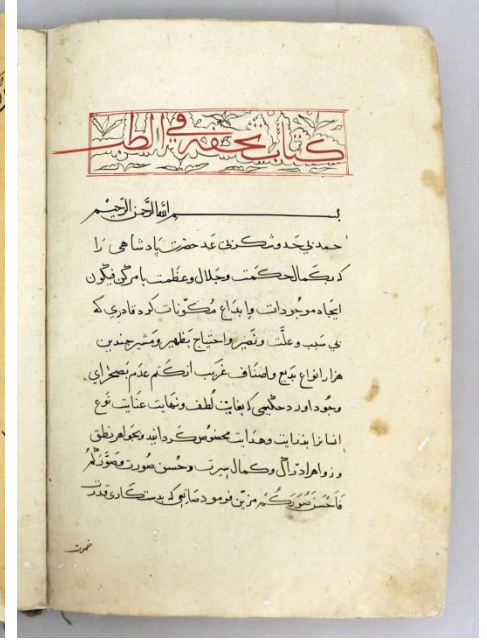 كتاب تحفه في الطب
بسم الله الرحمن الرحيم
حمد بي حد و شكر بي عد حضرت پادشاهى را
كه بكمال حكمت و جلال و عظمت بامر كن فيكون
ايجاد موجودات و ابداع مكونات كرد قادرى كه
بي سبب و علّت و نصير و احتياج بظهير و مشير چندين
هزار انواع بديع و اصناف غريب از كتم عدم بصحراى
وجود اورد حكيمى كه بغايت لطف و نهايت عنايت نوع
انسانرا بدرايت و هدايت مخصوص كردانيد و بجواهر نطق
و زواهر ادراك و كمال سيرت و حسن صورت وَصَوَّرَكُمْ
فَاَحْسَنَ صُوَرَكُمْ مزين فرمود صانعى كه بدستكارى قدرت